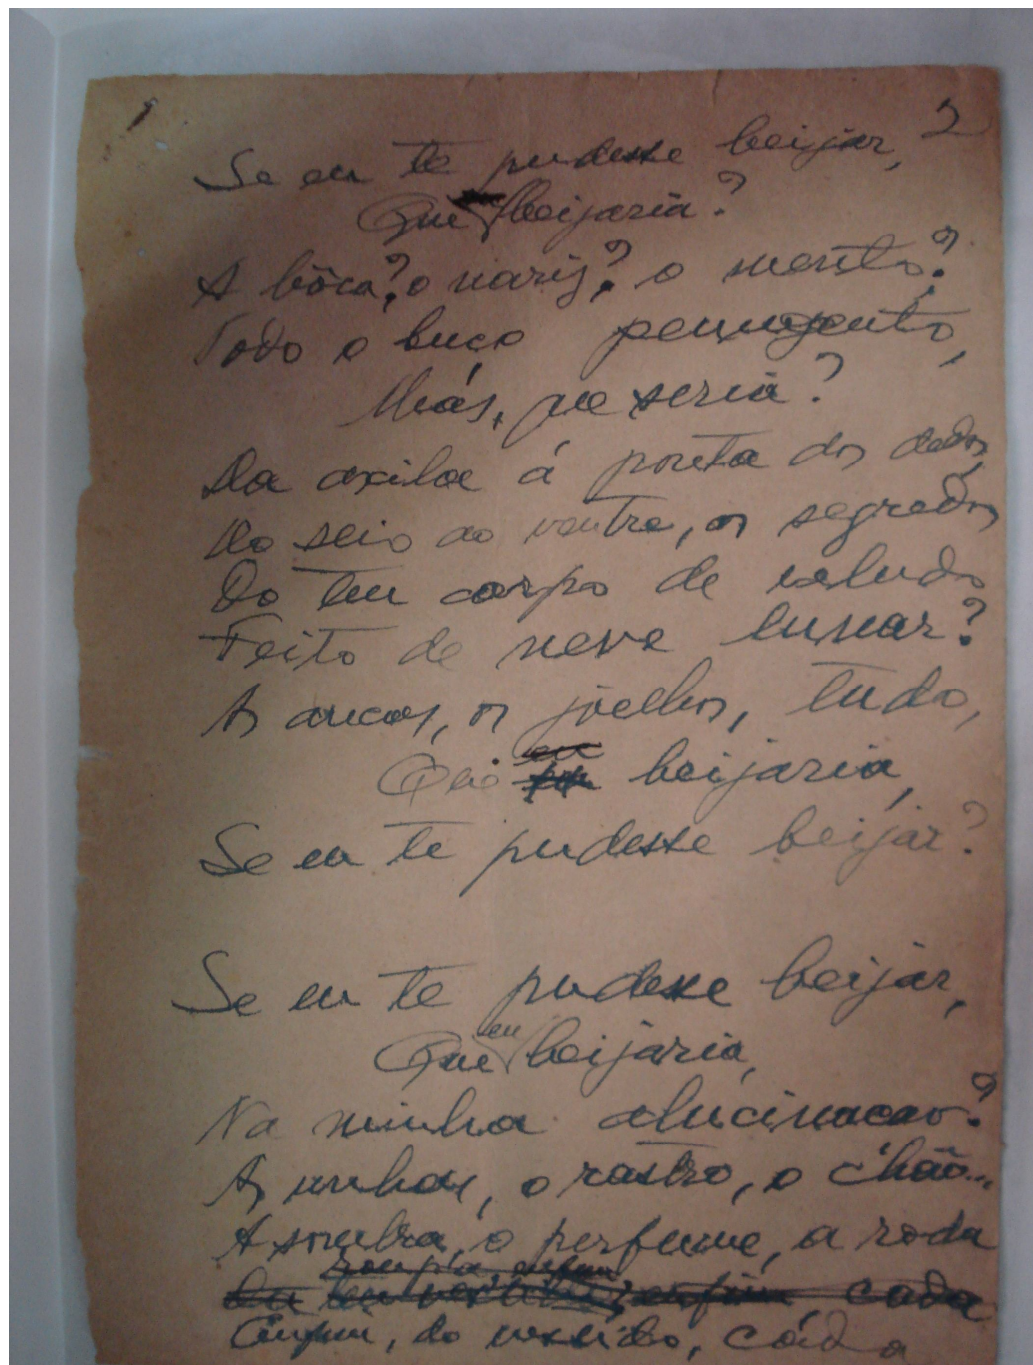 1 2
Se eu te pudesse beijar,
Que beijaria?
A bôca? o nariz? o mento?
Todo o buço penugento,
Mas, que seria?
Da axila á ponta dos dedos,
Do seio ao ventre, os segredos
Do teu corpo de veludo
Feito de neve lunar?
As ancas, os joelhos, tudo,
Que eu beijaria,
Se eu te pudesse beijar?
Se eu te pudesse beijar,
Que eu beijaria,
Na minha alucinacao?
As unhas, o rastro, o chão...
A sombra, o perfume, a roda
roupa enfim
enfim cada
Enfim, do vestido, cáda